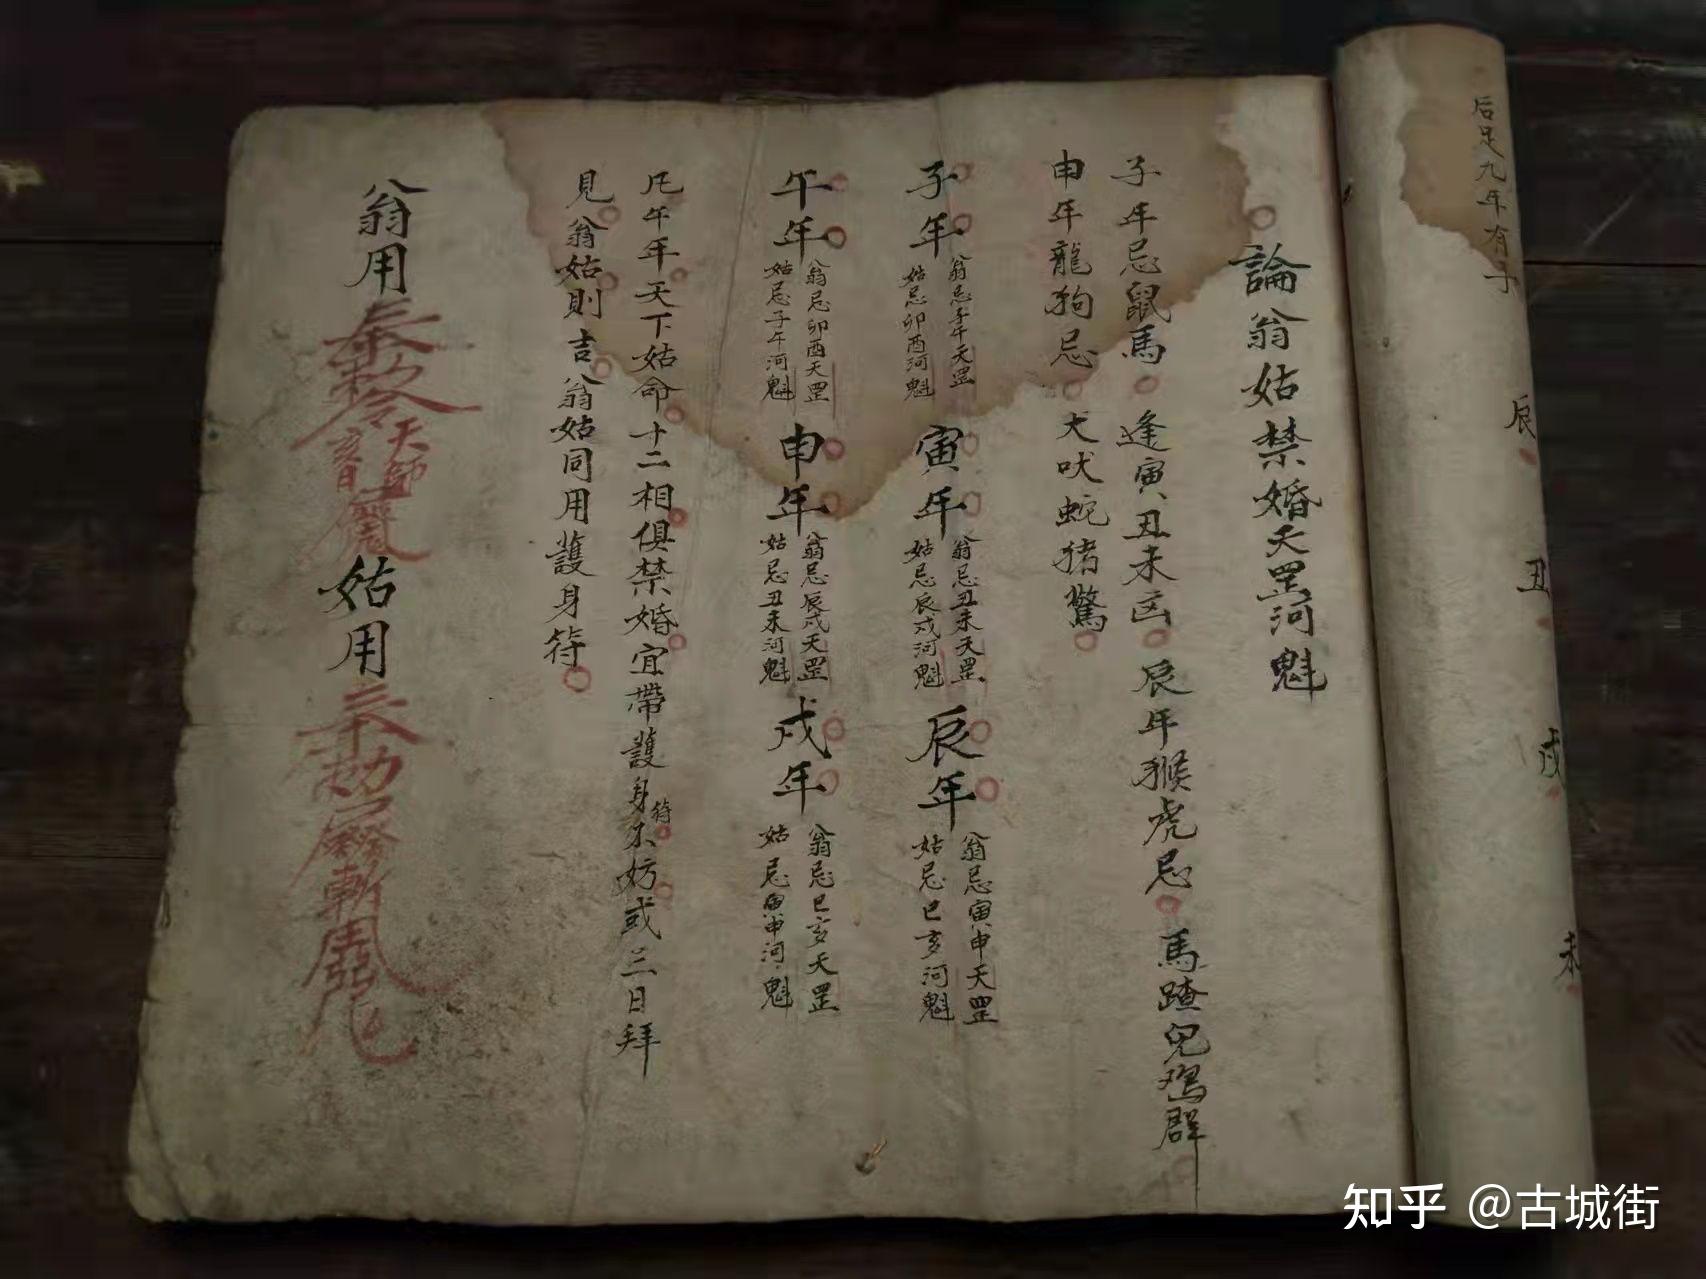 后足九年有子
辰 丑 戌 未
論翁姑禁婚天罡河魁
子年忌鼠馬 逢寅丑未凶 辰年猴虎忌 馬蹅兒鳮群
申年龍狗忌 犬吠蛇猪驚
子年 翁忌子午天罡 姑忌卯酉河魁 寅年 翁忌丑未天罡 姑忌辰戌河魁 辰年 翁忌寅申天罡 姑忌巳亥河魁
午年 翁忌卯酉天罡 姑忌子午河魁 申年 翁忌辰戌天罡 姑忌丑未河魁 戌年 翁忌巳亥天罡 姑忌寅申河魁
凡午年天下姑命十二相俱禁婚宜帶護身符不妨或三日拜
見翁姑則吉 翁姑同用護身符
翁用 天師 姑用 斬
知乎 @古城街